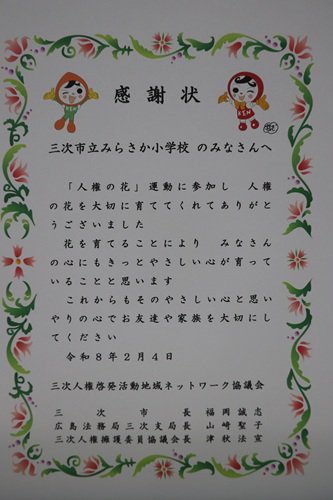 感謝状
三次市立みらさか小学校 のみなさんへ
「人権の花」運動に参加し 人権
の花を大切に育ててくれてありがと
うございました
花を育てることにより みなさん
の心にもきっとやさしい心が育って
いることと思います
これからもそのやさしい心と思い
やりの心でお友達や家族を大切にし
てください
令和8年2月4日
三次人権啓発活動地域ネットワーク協議会
三次市長 福岡誠志
広島法務局三次支局長 山崎聖子
三次人権擁護委員協議会長 津秋法宣